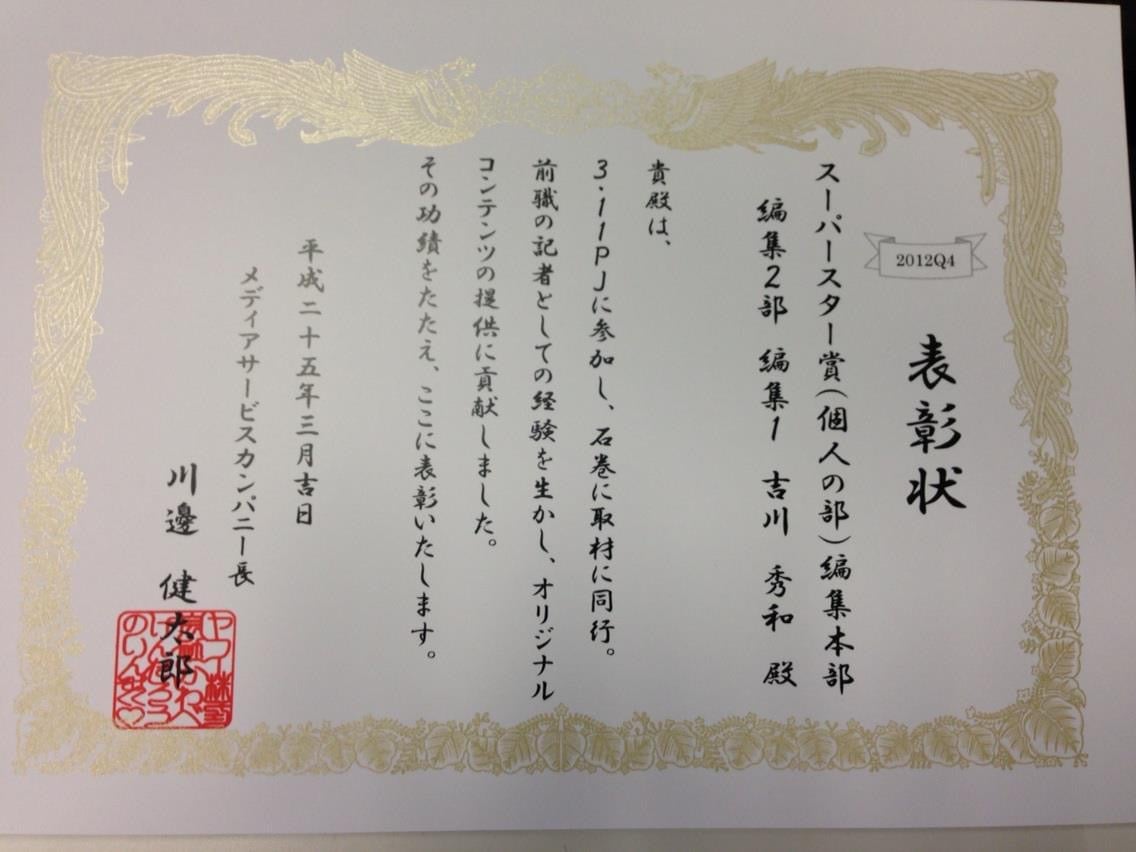 2012Q4
表彰状
スーパースター賞(個人の部)編集本部
編集2部 編集1 吉川 秀和 殿
貴殿は、
3・11PJに参加し、石巻に取材に同行。
前職の記者としての経験を生かし、オリジナル
コンテンツの提供に貢献しました。
その功績をたたえ、ここに表彰いたします。
平成二十五年三月吉日
メディアサービスカンパニー長
川邊 健太郎